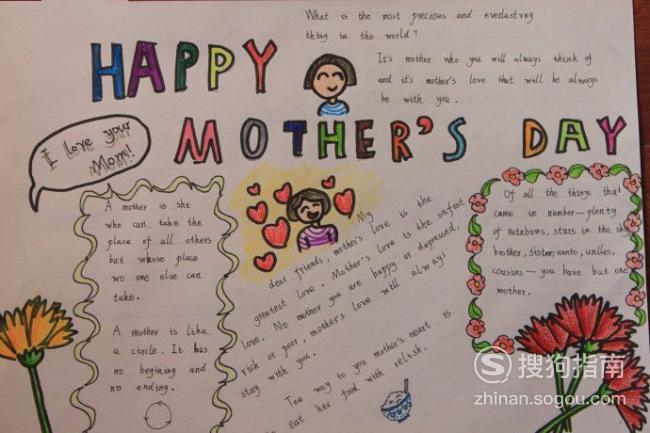 What is the most precious and everlasting
thing in the world?
It's mother who you will always think of
and it's mother's love that will be always
be with you.
HAPPY
MOTHER'S DAY
I love your
Mom!
A mother is she
who can take the
place of all others
but whose place
wo one else can
take.
A mother is like
a circle. It has
no begining and
no ending.
My
dear friends, mother's love is the
greatest love. Mother's love is the safest
love. No mother you are happy or depressed,
rich or poor, mother's love will always
stay with you.
The way to you mother's heart is
eat her food with relish.
Of all the things that
came in number—plenty
of rainbows, stars in the sky
brother, sister, aunts, unlles,
cousins—you have but one
mother.
搜狗指南
zhinan.sogou.com